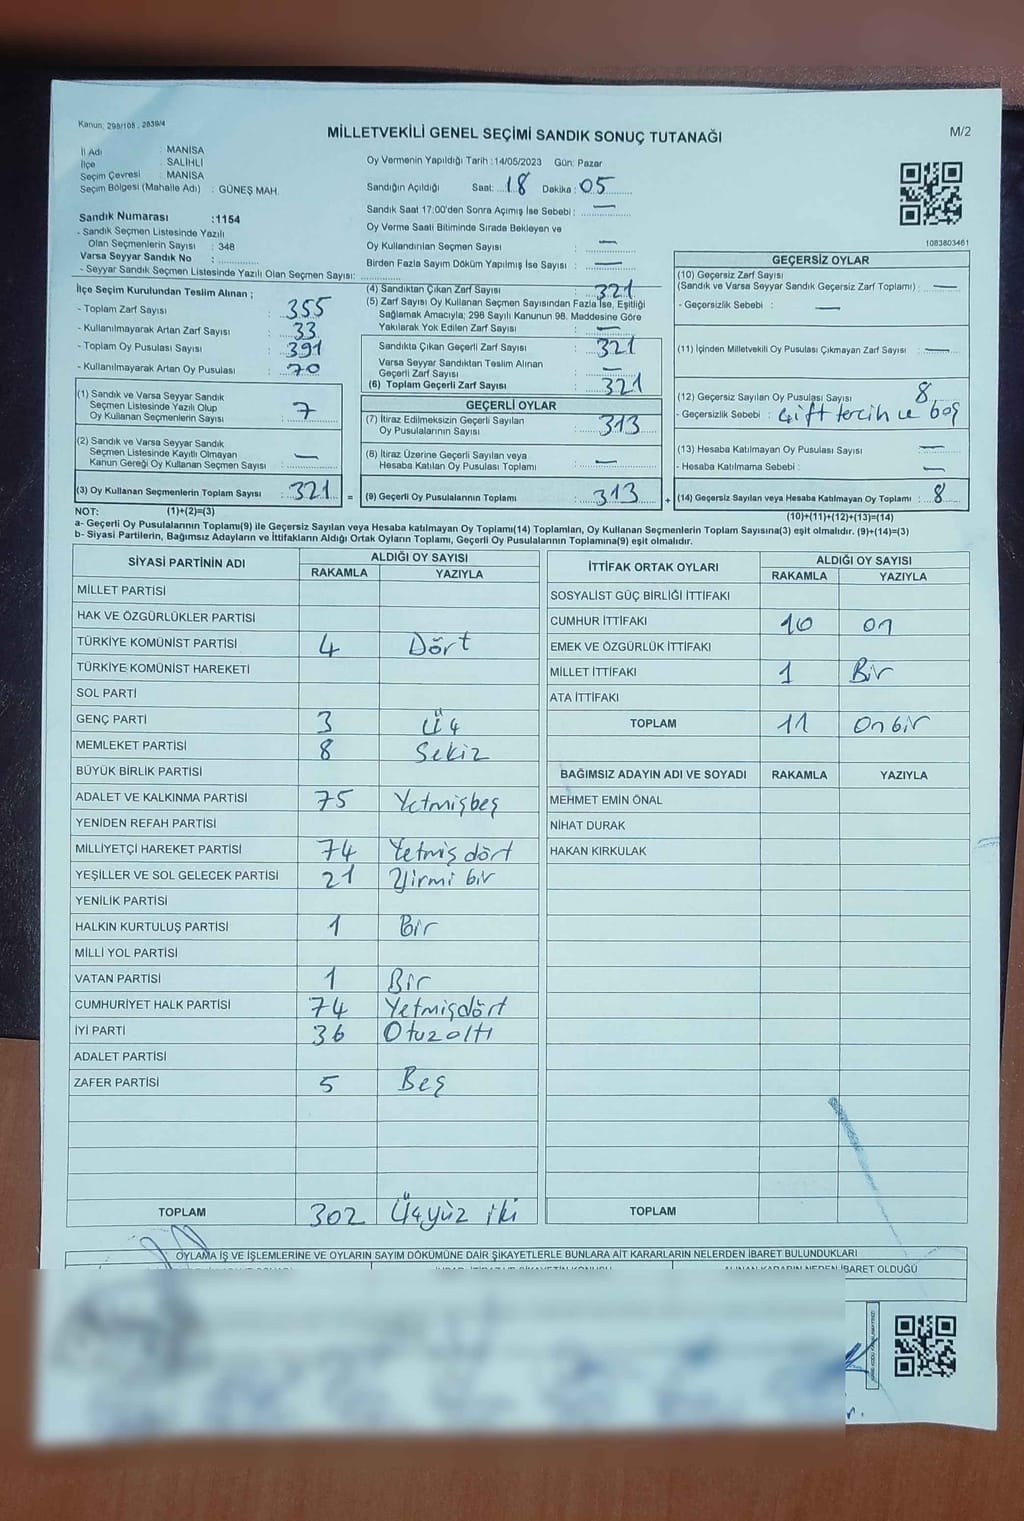 Kanun: 298/105 - 2839/4
MİLLETVEKİLİ GENEL SEÇİMİ SANDIK SONUÇ TUTANAĞI
M/2
İl Adı : MANİSA
İlçe : SALİHLİ
Seçim Çevresi : MANİSA
Seçim Bölgesi (Mahalle Adı) : GÜNEŞ MAH.
Sandık Numarası :1154
- Sandık Seçmen Listesinde Yazılı
Olan Seçmenlerin Sayısı : 348
Varsa Seyyar Sandık No :
- Seyyar Sandık Seçmen Listesinde Yazılı Olan Seçmen Sayısı:
Oy Vermenin Yapıldığı Tarih :14/05/2023 Gün: Pazar
Sandığın Açıldığı Saat: 18 Dakika : 05
Sandık Saat 17:00'den Sonra Açımış İse Sebebi : —
Oy Verme Saati Bitiminde Sırada Bekleyen ve
Oy Kullandırılan Seçmen Sayısı : —
Birden Fazla Sayım Döküm Yapılmış İse Sayısı : —
1083803461
İlçe Seçim Kurulundan Teslim Alınan ;
- Toplam Zarf Sayısı : 355
- Kullanılmayarak Artan Zarf Sayısı : 33
- Toplam Oy Pusulası Sayısı : 391
- Kullanılmayarak Artan Oy Pusulası : 70
(1) Sandık ve Varsa Seyyar Sandık
Seçmen Listesinde Yazılı Olup
Oy Kullanan Seçmenlerin Sayısı : 7
(2) Sandık ve Varsa Seyyar Sandık
Seçmen Listesinde Kayıtlı Olmayan
Kanun Gereği Oy Kullanan Seçmen Sayısı : —
(3) Oy Kullanan Seçmenlerin Toplam Sayısı : 321 =
(4) Sandıktan Çıkan Zarf Sayısı : 321
(5) Zarf Sayısı Oy Kullanan Seçmen Sayısından Fazla İse, Eşitliği
Sağlamak Amacıyla; 298 Sayılı Kanunun 98. Maddesine Göre
Yakılarak Yok Edilen Zarf Sayısı : —
Sandıkta Çıkan Geçerli Zarf Sayısı : 321
Varsa Seyyar Sandıktan Teslim Alınan
Geçerli Zarf Sayısı : —
(6) Toplam Geçerli Zarf Sayısı : 321
GEÇERLİ OYLAR
(7) İtiraz Edilmeksizin Geçerli Sayılan
Oy Pusulalarının Sayısı : 313
(8) İtiraz Üzerine Geçerli Sayılan veya
Hesaba Katılan Oy Pusulası Toplamı : —
(9) Geçerli Oy Pusulalarının Toplamı : 313 +
GEÇERSİZ OYLAR
(10) Geçersiz Zarf Sayısı
(Sandık ve Varsa Seyyar Sandık Geçersiz Zarf Toplamı) : —
- Geçersizlik Sebebi : —
(11) İçinden Milletvekili Oy Pusulası Çıkmayan Zarf Sayısı : —
(12) Geçersiz Sayılan Oy Pusulası Sayısı : 8
- Geçersizlik Sebebi : çift tercih ve boş
(13) Hesaba Katılmayan Oy Pusulası Sayısı : —
- Hesaba Katılmama Sebebi : —
(14) Geçersiz Sayılan veya Hesaba Katılmayan Oy Toplamı : 8
NOT: (1)+(2)=(3)
(10)+(11)+(12)+(13)=(14)
a- Geçerli Oy Pusulalarının Toplamı(9) ile Geçersiz Sayılan veya Hesaba katılmayan Oy Toplamı(14) Toplamları, Oy Kullanan Seçmenlerin Toplam Sayısına(3) eşit olmalıdır. (9)+(14)=(3)
b- Siyasi Partilerin, Bağımsız Adayların ve İttifakların Aldığı Ortak Oyların Toplamı, Geçerli Oy Pusulalarının Toplamına(9) eşit olmalıdır.
SİYASİ PARTİNİN ADI ALDIĞI OY SAYISI
RAKAMLA YAZIYLA
MİLLET PARTİSİ
HAK VE ÖZGÜRLÜKLER PARTİSİ
TÜRKİYE KOMÜNİST PARTİSİ 4 Dört
TÜRKİYE KOMÜNİST HAREKETİ
SOL PARTİ
GENÇ PARTİ 3 Üç
MEMLEKET PARTİSİ 8 Sekiz
BÜYÜK BİRLİK PARTİSİ
ADALET VE KALKINMA PARTİSİ 75 Yetmişbeş
YENİDEN REFAH PARTİSİ
MİLLİYETÇİ HAREKET PARTİSİ 74 Yetmiş dört
YEŞİLLER VE SOL GELECEK PARTİSİ 21 Yirmi bir
YENİLİK PARTİSİ
HALKIN KURTULUŞ PARTİSİ 1 Bir
MİLLİ YOL PARTİSİ
VATAN PARTİSİ 1 Bir
CUMHURİYET HALK PARTİSİ 74 Yetmişdört
İYİ PARTİ 36 Otuzaltı
ADALET PARTİSİ
ZAFER PARTİSİ 5 Beş
TOPLAM 302 Üçyüz iki
İTTİFAK ORTAK OYLARI ALDIĞI OY SAYISI
RAKAMLA YAZIYLA
SOSYALİST GÜÇ BİRLİĞİ İTTİFAKI
CUMHUR İTTİFAKI 10 on
EMEK VE ÖZGÜRLÜK İTTİFAKI
MİLLET İTTİFAKI 1 Bir
ATA İTTİFAKI
TOPLAM 11 Onbir
BAĞIMSIZ ADAYIN ADI VE SOYADI RAKAMLA YAZIYLA
MEHMET EMİN ÖNAL
NİHAT DURAK
HAKAN KIRKULAK
TOPLAM
OYLAMA İŞ VE İŞLEMLERİNE VE OYLARIN SAYIM DÖKÜMÜNE DAİR ŞİKAYETLERLE BUNLARA AİT KARARLARIN NELERDEN İBARET BULUNDUKLARI
ALINAN KARARIN NEDEN İBARET OLDUĞU